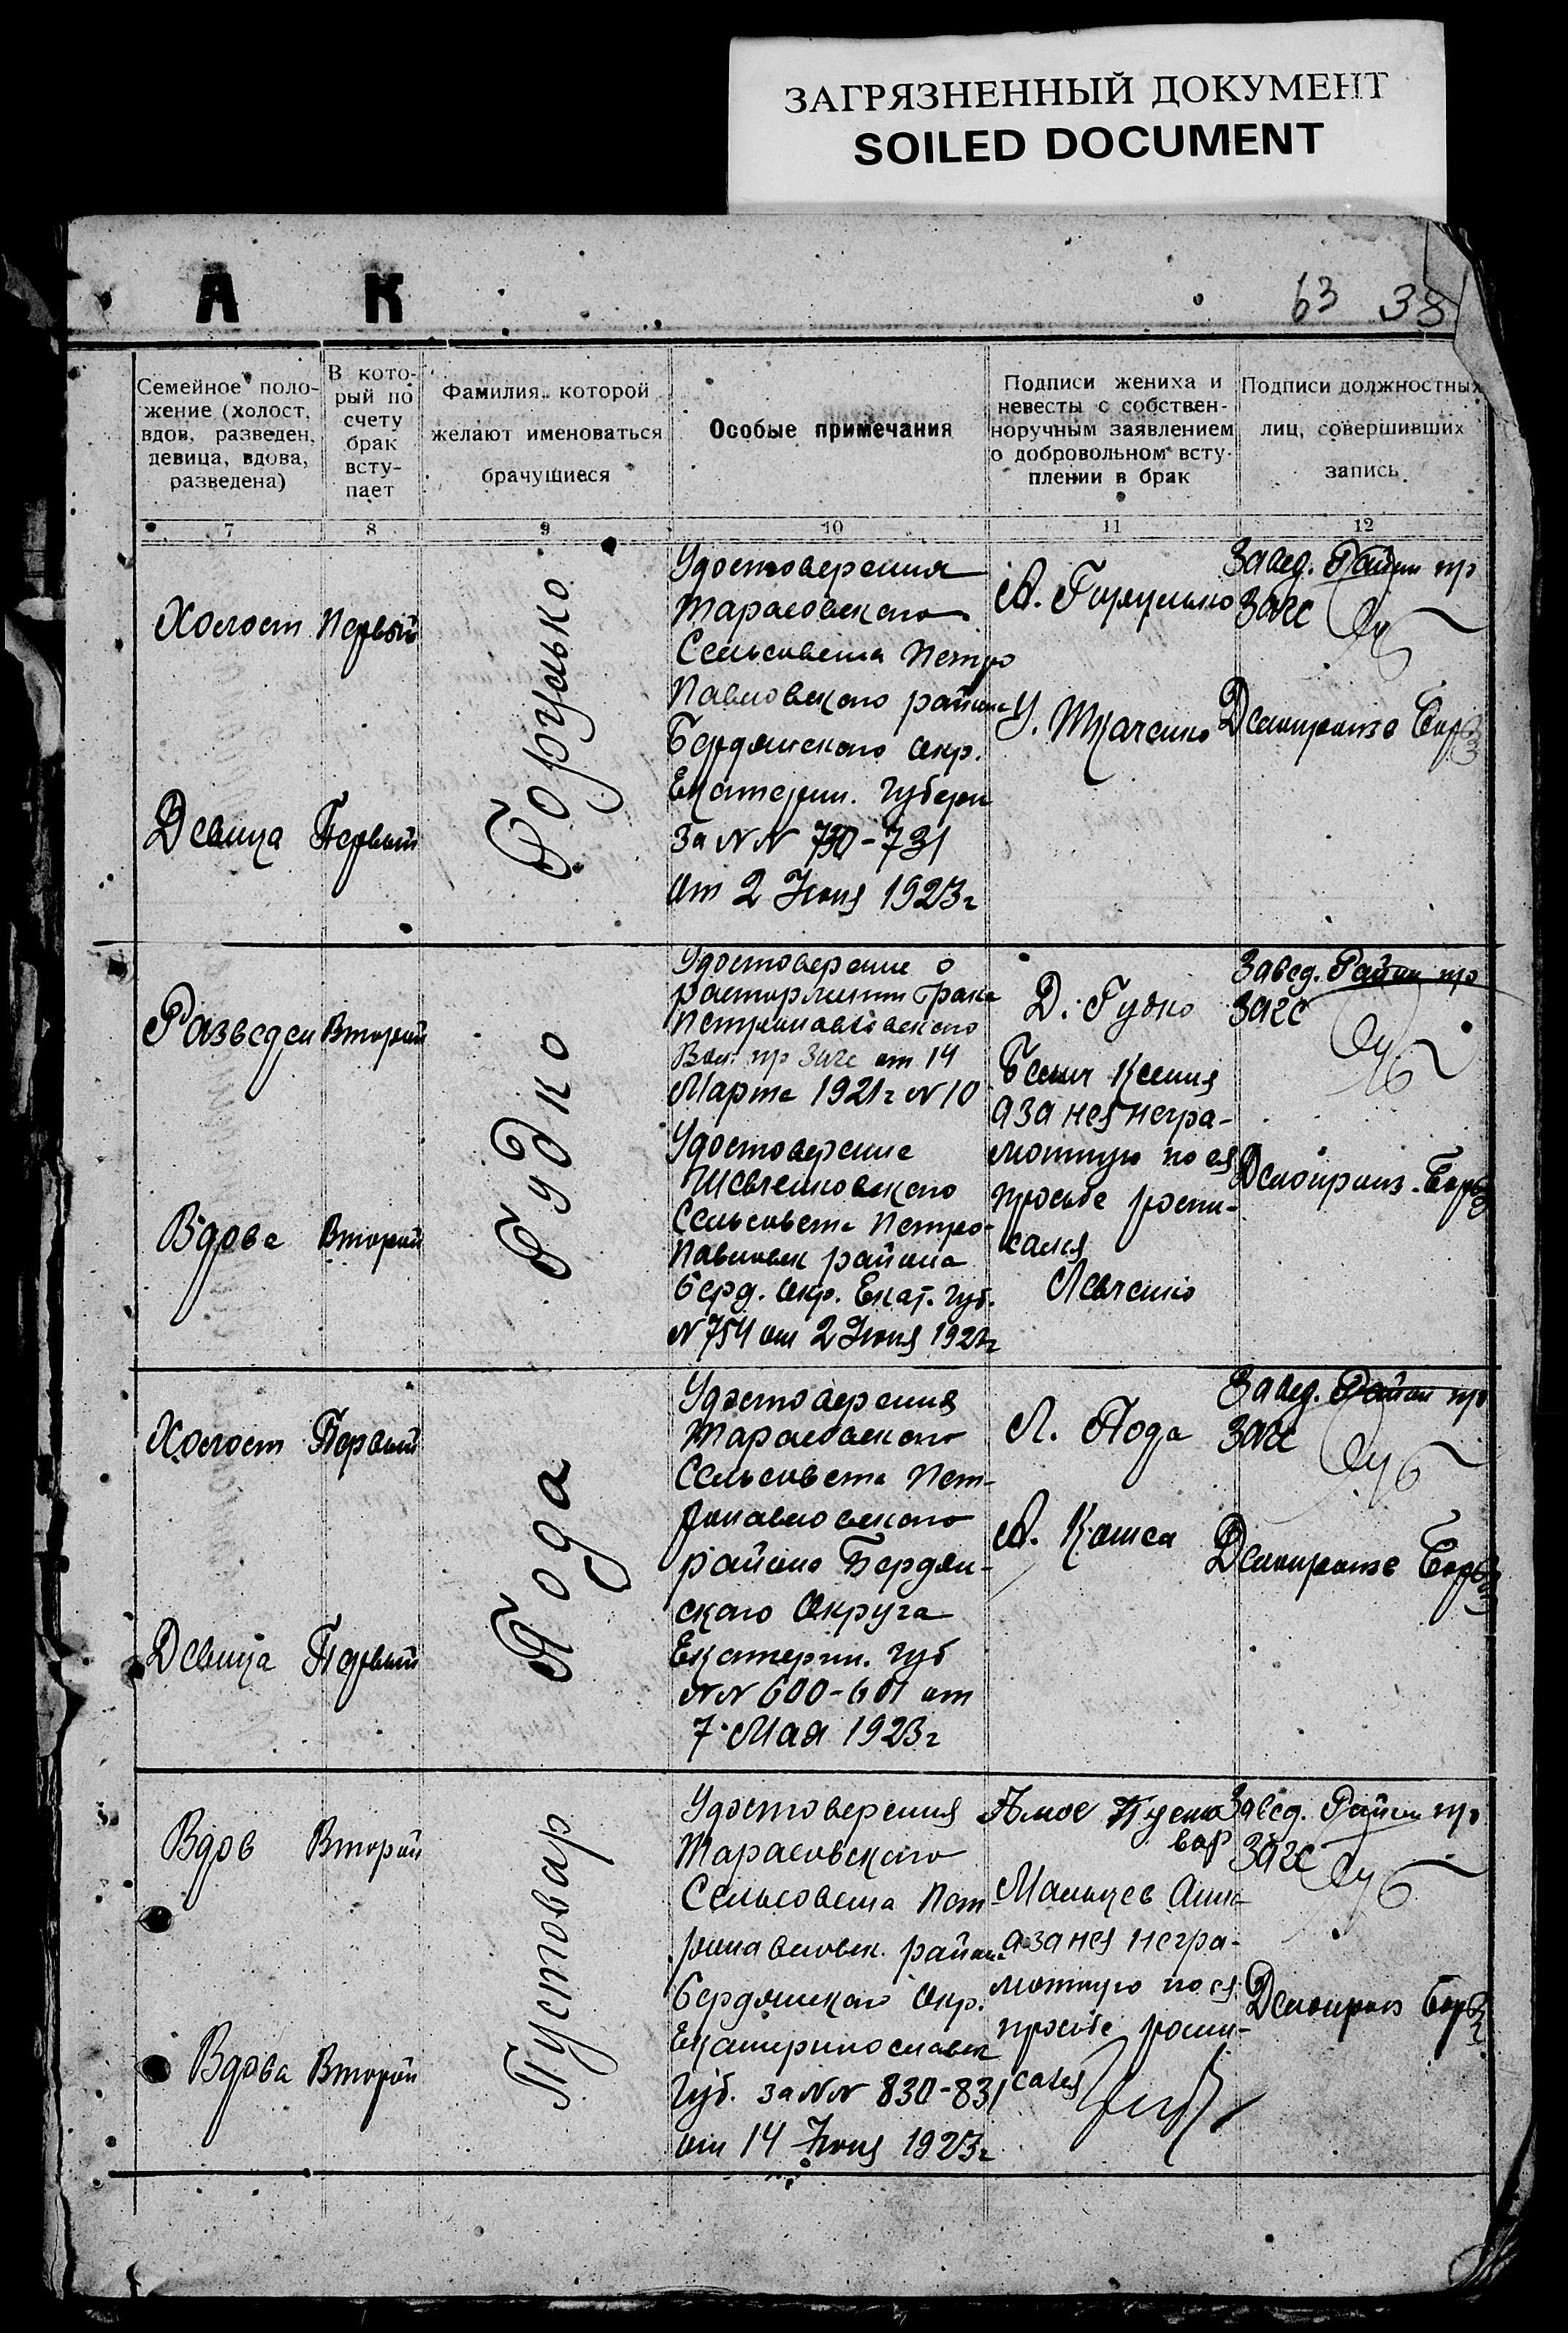 ЗАГРЯЗНЕННЫЙ ДОКУМЕНТ
SOILED DOCUMENT
А К
63 38
Семейное поло-
жение (холост,
вдов, разведен,
девица, вдова,
разведена)
В кото-
рый по
счету
брак
всту-
пает
Фамилия, которой
желают именоваться
брачущиеся
Особые примечания
Подписи жениха и
невесты с собствен-
норучным заявлением
о добровольном всту-
плении в брак
Подписи должностных
лиц, совершивших
запись
7 8 9 10 11 12
Холост Первый
Девица Первый
Горулько
Удостоверения
Тарасовского
Сельсовета Петро
Павловского района
Бердянского Окр.
Екатерин. Губерн
За NN 730-731
от 2 Июня 1923г
А. Горулько
У. Ткаченко
Завед. Район пр
Загс
Разведен Второй
Вдова Второй
Гудко
Удостоверение о
расторжении брака
Петропавловского
Вол. пр Загс от 14
Марта 1921г N 10
Удостоверение
Шевченковского
Сельсовета Петро-
Павловск района
Берд. Окр. Екат. Губ.
N 754 от 2 Июня 1923г
Д. Гудко
Ксения
а за нея негра-
мотную по ея
просьбе роспи-
сался
Левченко
Завед. Район пр
Загс
Холост Первый
Девица Первый
Пода
Удостоверения
Тарасовского
Сельсовета Пет-
ропавловского
района Бердян-
ского Округа
Екатерин. Губ
NN 600-601 от
7 Мая 1923г
Л. Пода
А.
Завед. Район пр
Загс
Вдов Второй
Вдова Второй
Пустовар
Удостоверения
Тарасовского
Сельсовета Пет
ропавловск. района
Бердянского Окр.
Екатеринославск
Губ. за NN 830-831
от 14 Июня 1923г
Амос Пусто
вар
Мальцев Анна
а за нея негра-
мотную по ея
просьбе роспи-
сался
Завед. Район пр
Загс